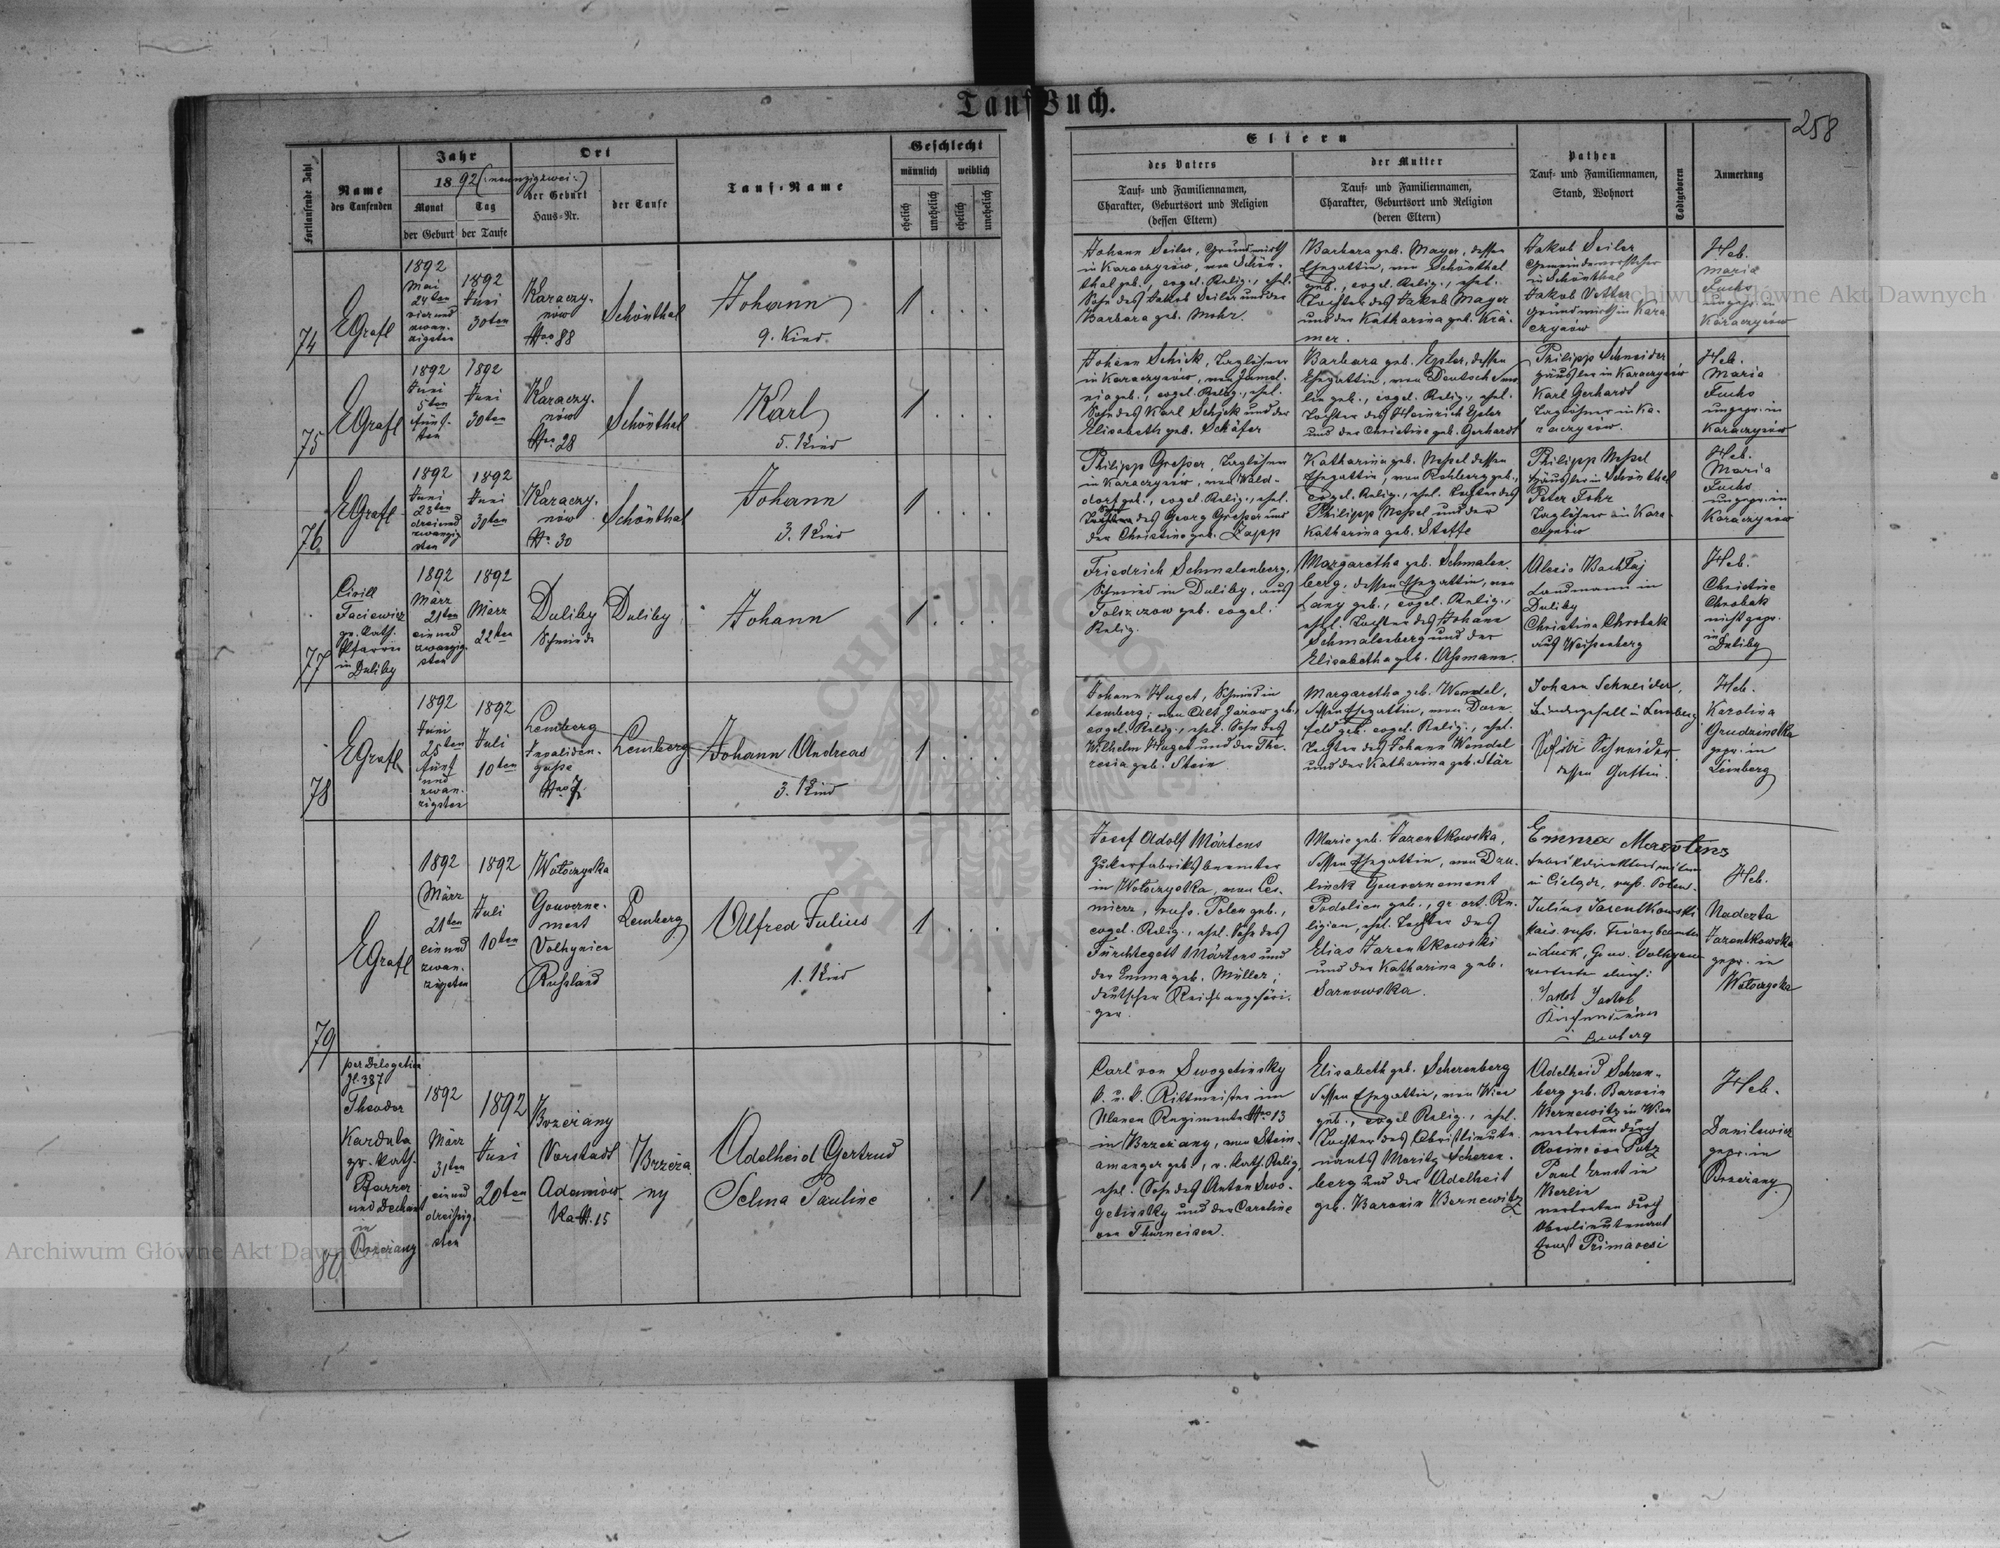 Tauf Buch.
258
Fortlaufende Zahl
Name
des Taufenden
Jahr
18 92 (:neunzigzwei:)
Monat
der Geburt
Tag
der Taufe
Ort
der Geburt
Haus=Nr.
der Taufe
Tauf=Name
Geschlecht
männlich
weiblich
ehelich
unehelich
ehelich
unehelich
Eltern
des Vaters
Tauf= und Familiennamen,
Charakter, Geburtsort und Religion
(dessen Eltern)
der Mutter
Tauf= und Familiennamen,
Charakter, Geburtsort und Religion
(deren Eltern)
Pathen
Tauf= und Familiennamen,
Stand, Wohnort
Todtgeboren
Anmerkung
74
EGrafl
1892
Mai
24ten
vierund
zwan-
zigsten
1892
Juni
30ten
Karaczy-
nów
Nro 88
Schönthal
Johann
9. Kind.
1
Johann Seiler, Grundwirth
in Karaczynów, von Schön-
thal geb., evgel. Relig., ehel.
Sohn des Jakob Seiler und der
Barbara geb. Mohr.
Barbara geb. Mayer, dessen
Ehegattin, von Schönthal
geb., evgel. Relig., ehel.
Tochter des Jakob Mayer
und der Katharina geb. Krä-
mer.
Jakob Seiler
Gemeindevorsteher
in Schönthal
Jakob Vetter
Grundwirth in Kara
czynów
Heb.
Maria
Fuchs
ungepr. in
Karaczynów
75
EGrafl
1892
Juni
5ten
fünf-
ten
1892
Juni
30ten
Karaczy-
nów
Nro 28
Schönthal
Karl
5. Kind
1
Johann Schick, Taglöhner
in Karaczynów, von Jamel-
nia geb., evgel. Relig., ehel.
Sohn des Karl Schick und der
Elisabeth geb. Schäfer
Barbara geb. Epler, dessen
Ehegattin, von Deutsch Smo
lin geb., evgel. Relig., ehel.
Tochter des Heinrich Epler
und der Christine geb. Gerhardt
Philipp Schneider
Häusler in Karaczynów
Karl Gerhardt
Taglöhner in Ka-
raczynów.
Heb.
Maria
Fuchs
ungepr. in
Karaczynów
76
EGrafl
1892
Juni
23ten
dreiund
zwanzig
sten
1892
Juni
30ten
Karaczy-
nów
Nr. 30
Schönthal
Johann
3. Kind
1
Philipp Gresser, Taglöhner
in Karaczynów, von Wald-
dorf geb., evgel. Relig., ehel.
Sohn des Georg Gresser und
der Christine geb. Zapp
Katharina geb. Nessel dessen
Ehegattin, von Rohberg geb.,
evgel. Relig., ehel. Tochter des
Philipp Nessel und der
Katharina geb. Steffe
Philipp Nessel
Häusler in Schönthal
Peter Fohr
Taglöhner in Kara-
czynów
Heb.
Maria
Fuchs
ungepr. in
Karaczynów
77
Cirill
gr. kath.
Pfarrer
in Duliby
1892
März
21ten
einund
zwanzig-
sten
1892
März
22ten
Duliby
Schmiede
Duliby
Johann
1
Friedrich Schmalenberg,
Schmied in Duliby, aus
geb. evgel.
Relig.
Margaretha geb. Schmalen-
berg, dessen Ehegattin, von
Lany geb., evgel. Relig.,
ehel. Tochter des Johann
Schmalenberg und der
Elisabetha geb. Assmann.
Alexio
Landmann in
Duliby
Christina Chrobak
aus Weissenberg
Heb.
Christine
Chrobak
nicht gepr.
in
Duliby
78
EGrafl
1892
Juni
25ten
fünf
und
zwan-
zigsten
1892
Juli
10ten
Lemberg
Invaliden-
gasse
Nro 7
Lemberg
Johann Andreas
3. Kind
1
Johann Huget, Schmied in
Lemberg, von Alt Jazow geb.,
evgel. Relig., ehel. Sohn des
Wilhelm Huget und der The-
resia geb. Stein
Margaretha geb. Wendel,
dessen Ehegattin, von Dorn-
feld geb. evgel. Relig., ehel.
Tochter des Johann Wendel
und der Katharina geb. Stär
Johann Schneider,
in Lemberg
Schneider
dessen Gattin.
Heb.
Karolina
Grudzinska
gepr. in
Lemberg
79
EGrafl
1892
März
21ten
einund
zwan-
zigsten
1892
Juli
10ten
Wołoczyska
Gouverne-
ment
Volhynien
Russland
Lemberg
Alfred Julius
1. Kind
1
Josef Adolf Märtens
Zuckerfabriksbeamter
in Wołoczyska, von Les-
mierz, russ. Polen geb.,
evgel. Relig., ehel. Sohn des
Fürchtegott Märtens und
der Emma geb. Müller;
deutscher Reichsangehöri-
ger.
Marie geb. Jarentkowska,
dessen Ehegattin, von Dzu-
linek Gouvernement
Podolien geb., gr. ort. Re-
ligion, ehel. Tochter des
Elias Jarentkowski
und der Katharina geb.
Sarnowska.
Emma Maertens
Fabrikdirektorswitwe
in russ. Polen.
Julius Jarentkowski
kais. russ. Finanzbeamter
in Luck, Gouv. Volhynien
vertreten durch:
Jakob
Kirchendiener
in Lemberg
Heb.
Nadezta
Jarentkowska
gepr. in
Wołoczyska
80
per Delegation
Zl. 387
Theodor
Karduba
gr. kath.
Pfarrer
und Dechant
in
Brzeżany
1892
März
31ten
einund
dreissig-
sten
1892
Juni
20ten
Brzeżany
Vorstadt
Adamów-
ka N. 15
Brzeża
ny
Adelheid Gertrud
Selma Pauline
1
Carl von Swogetinsky
k. u. k. Rittmeister im
Ulanen Regimente Nro 13
in Brzeżany, von Stein-
amanger geb., r. kath. Relig.
ehel. Sohn des Anton Swo-
getinsky und der Caroline
von Thurneisen.
Elisabeth geb. Scherenberg
dessen Ehegattin, von Wien
geb., evgel Relig., ehel.
Tochter des Obristlieute-
nants Moritz Scheren-
berg und der Adelheit
geb. Baronin Bernewitz
Adelheid Scheren-
berg geb. Baronin
Bernewitz in Wien
vertreten durch
Rosine von Putz
Paul Ernst in
Berlin
vertreten durch
Oberlieutenant
Ernst Primavesi
Heb.
Danilewicz
gepr. in
Brzeżany
Archiwum Główne Akt Dawnych
Archiwum Główne Akt Dawnych